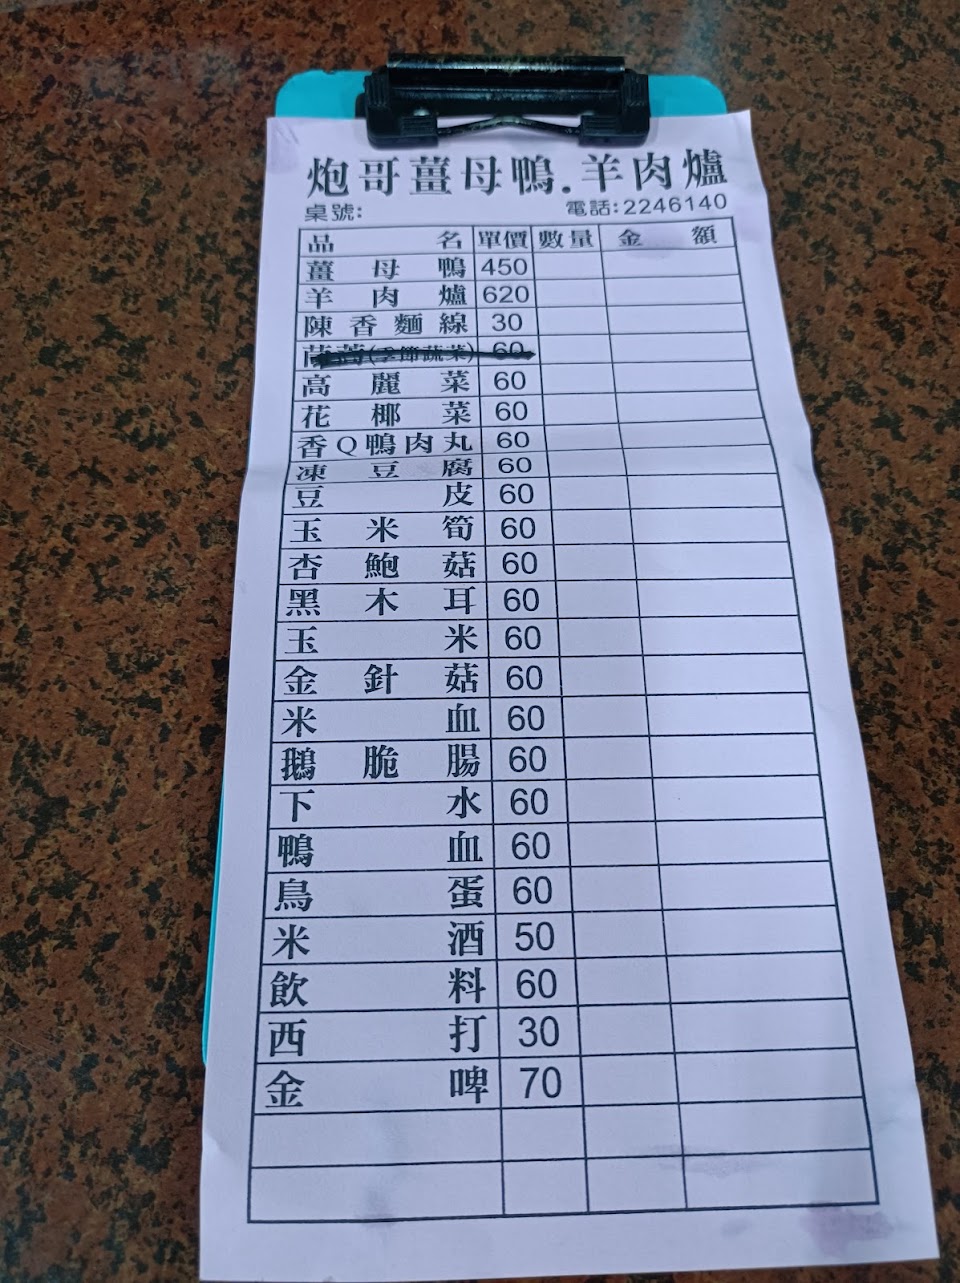 炮哥薑母鴨.羊肉爐
桌號: 電話:2246140
品名 單價 數量 金額
薑母鴨 450
羊肉爐 620
陳香麵線 30
茼蒿(季節蔬菜) 60
高麗菜 60
花椰菜 60
香Q鴨肉丸 60
凍豆腐 60
豆皮 60
玉米筍 60
杏鮑菇 60
黑木耳 60
玉米 60
金針菇 60
米血 60
鵝脆腸 60
下水 60
鴨血 60
鳥蛋 60
米酒 50
飲料 60
西打 30
金啤 70